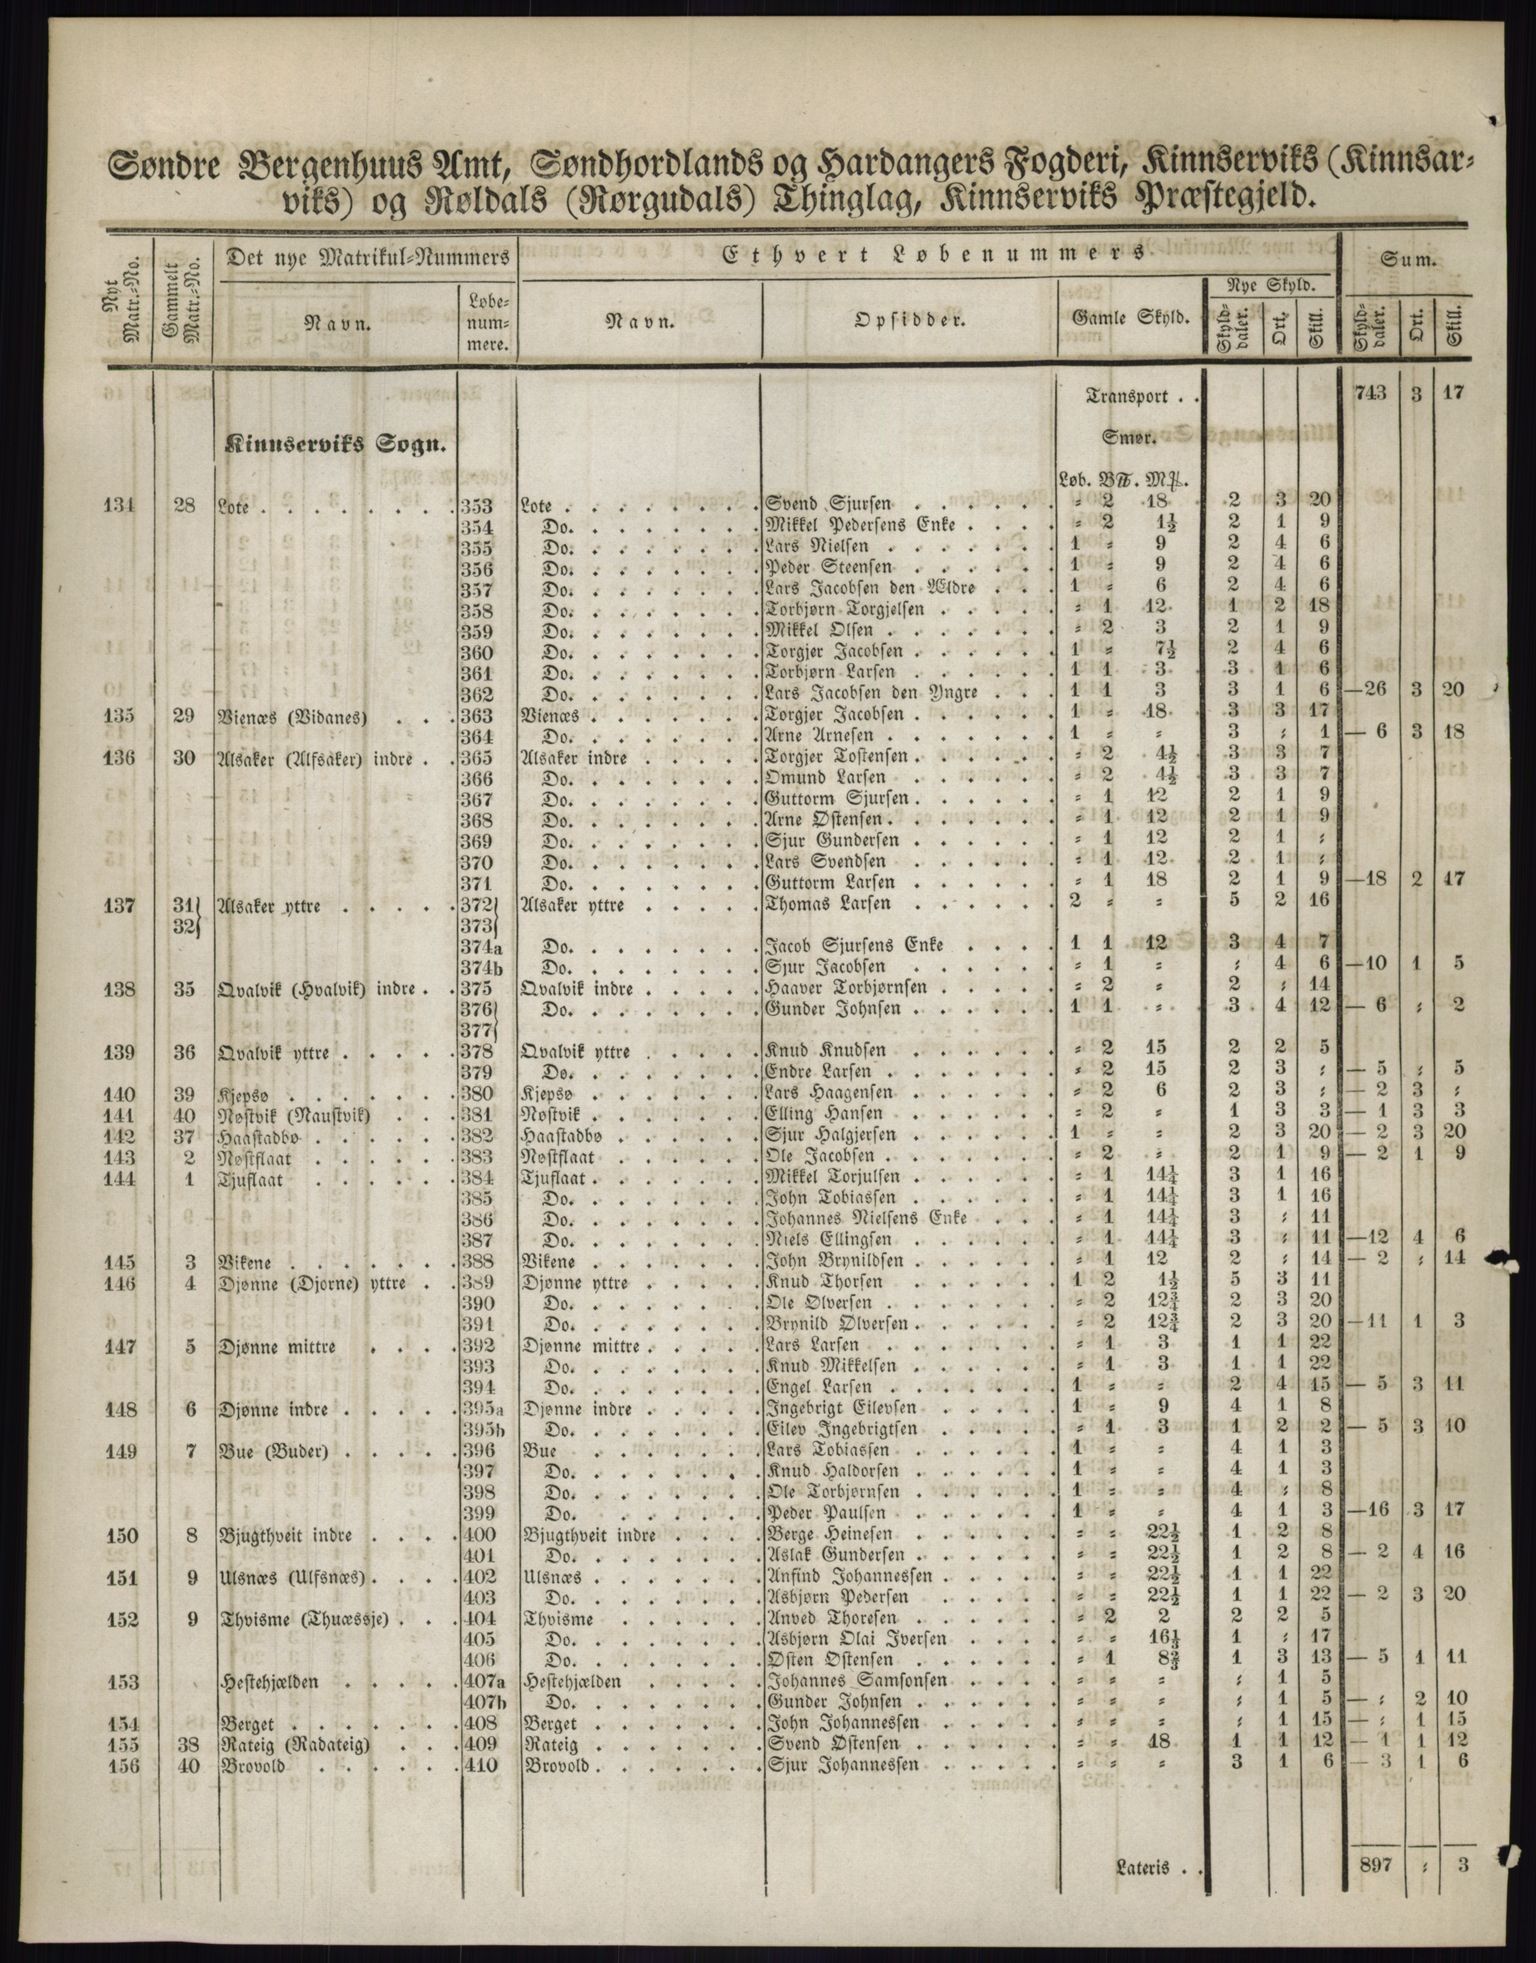 Søndre Bergenhuus Amt, Søndhordlands og Hardangers Fogderi, Kinnserviks (Kinnsar-
viks) og Røldals (Rørgudals) Thinglag, Kinnserviks Præstegjeld.
Nyt Matr.-No. Gammelt Matr.-No. Det nye Matrikul-Nummers Ethvert Løbenummers Sum.
Navn. Løbe-nummere. Navn. Opsidder. Gamle Skyld. Nye Skyld. Skylddaler. Ort. Skill. Skylddaler. Ort. Skill.
Transport . . 743 3 17
Kinnserviks Sogn. Smør.
Løb. B℔. M₰.
131 28 Lote . . . . . . . . 353 Lote . . . . . . . . Svend Sjursen . . . . . . = 2 18 2 3 20
354 Do. . . . . . . . Mikkel Pedersens Enke . . . . = 2 1½ 2 1 9
355 Do. . . . . . . . Lars Nielsen . . . . . . . 1 = 9 2 4 6
356 Do. . . . . . . . Peder Steensen . . . . . . 1 = 9 2 4 6
357 Do. . . . . . . . Lars Jacobsen den Ældre . . . 1 = 6 2 4 6
358 Do. . . . . . . . Torbjørn Torgjelsen . . . . . = 1 12 1 2 18
359 Do. . . . . . . . Mikkel Olsen . . . . . . . = 2 3 2 1 9
360 Do. . . . . . . . Torgjer Jacobsen . . . . . . 1 = 7½ 2 4 6
361 Do. . . . . . . . Torbjørn Larsen . . . . . . 1 1 3 3 1 6
362 Do. . . . . . . . Lars Jacobsen den Yngre . . . 1 1 3 3 1 6 —26 3 20
135 29 Vienæs (Vidanes) . . . 363 Vienæs . . . . . . . Torgjer Jacobsen . . . . . . 1 = 18 3 3 17
364 Do. . . . . . . . Arne Arnesen . . . . . . . 1 = = 3 = 1 — 6 3 18
136 30 Alsaker (Alfsaker) indre . . 365 Alsaker indre . . . . . Torgjer Tostensen . . . . . . = 2 4½ 3 3 7
366 Do. . . . . . . . Omund Larsen . . . . . . = 2 4½ 3 3 7
367 Do. . . . . . . . Guttorm Sjursen . . . . . . = 1 12 2 1 9
368 Do. . . . . . . . Arne Østensen . . . . . . . = 1 12 2 1 9
369 Do. . . . . . . . Sjur Gundersen . . . . . . = 1 12 2 1 =
370 Do. . . . . . . . Lars Svendsen . . . . . . = 1 12 2 1 =
371 Do. . . . . . . . Guttorm Larsen . . . . . . = 1 18 2 1 9 —18 2 17
137 31} Alsaker yttre . . . . . 372} Alsaker yttre . . . . . Thomas Larsen . . . . . . 2 = = 5 2 16
32} 373}
374a Do. . . . . . . . Jacob Sjursens Enke . . . . 1 1 12 3 4 7
374b Do. . . . . . . . Sjur Jacobsen . . . . . . = 1 = = 4 6 —10 1 5
138 35 Qvalvik (Hvalvik) indre . . 375 Qvalvik indre . . . . . Haaver Torbjørnsen . . . . . = 2 = 2 = 14
376} Do. . . . . . . . Gunder Johnsen . . . . . . 1 1 = 3 4 12 — 6 = 2
377}
139 36 Qvalvik yttre . . . . . 378 Qvalvik yttre . . . . . Knud Knudsen . . . . . . = 2 15 2 2 5
379 Do. . . . . . . . Endre Larsen . . . . . . . = 2 15 2 3 = — 5 = 5
140 39 Kjepsø . . . . . . . 380 Kjepsø . . . . . . . Lars Haagensen . . . . . . = 2 6 2 3 = — 2 3 =
141 40 Nøstvik (Naustvik) . . . 381 Nøstvik . . . . . . . Elling Hansen . . . . . . = 2 = 1 3 3 — 1 3 3
142 37 Haastadbø . . . . . . 382 Haastadbø . . . . . . Sjur Halgjersen . . . . . . 1 = = 2 3 20 — 2 3 20
143 2 Nøstflaat . . . . . . 383 Nøstflaat . . . . . . Ole Jacobsen . . . . . . . = 2 = 2 1 9 — 2 1 9
144 1 Tjuflaat . . . . . . 384 Tjuflaat . . . . . . . Mikkel Torjulsen . . . . . . = 1 14¼ 3 1 16
385 Do. . . . . . . . John Tobiassen . . . . . . = 1 14¼ 3 1 16
386 Do. . . . . . . . Johannes Nielsens Enke . . . = 1 14¼ 3 = 11
387 Do. . . . . . . . Niels Ellingsen . . . . . . = 1 14¼ 3 = 11 —12 4 6
145 3 Vikene . . . . . . . 388 Vikene . . . . . . . John Brynildsen . . . . . . = 1 12 2 = 14 — 2 = 14
146 4 Djønne (Djorne) yttre . . 389 Djønne yttre . . . . . Knud Thorsen . . . . . . 1 2 1½ 5 3 11
390 Do. . . . . . . . Ole Olversen . . . . . . . = 2 12¾ 2 3 20
391 Do. . . . . . . . Brynild Olversen . . . . . . = 2 12¾ 2 3 20 —11 1 3
147 5 Djønne mittre . . . . 392 Djønne mittre . . . . . Lars Larsen . . . . . . . = 1 3 1 1 22
393 Do. . . . . . . . Knud Mikkelsen . . . . . . = 1 3 1 1 22
394 Do. . . . . . . . Engel Larsen . . . . . . . 1 = = 2 4 15 — 5 3 11
148 6 Djønne indre . . . . . 395a Djønne indre . . . . . Ingebrigt Eilevsen . . . . . . 1 = 9 4 1 8
395b Do. . . . . . . . Eilev Ingebrigtsen . . . . . = 1 3 1 2 2 — 5 3 10
149 7 Bue (Buder) . . . . . 396 Bue . . . . . . . Lars Tobiassen . . . . . . 1 = = 4 1 3
397 Do. . . . . . . . Knud Haldorsen . . . . . . 1 = = 4 1 3
398 Do. . . . . . . . Ole Torbjørnsen . . . . . . 1 = = 4 = 8
399 Do. . . . . . . . Peder Paulsen . . . . . . 1 = = 4 1 3 —16 3 17
150 8 Bjugthveit indre . . . . 400 Bjugthveit indre . . . . Berge Heinesen . . . . . . = = 22½ 1 2 8
401 Do. . . . . . . . Aslak Gundersen . . . . . . = = 22½ 1 2 8 — 2 4 16
151 9 Ulsnæs (Ulfsnæs) . . . . 402 Ulsnæs . . . . . . . Anfind Johannessen . . . . . = = 22½ 1 1 22
403 Do. . . . . . . . Asbjørn Pedersen . . . . . = = 22½ 1 1 22 — 2 3 20
152 9 Thvisme (Thuæssje) . . . 404 Thvisme . . . . . . Anved Thoresen . . . . . . = 2 2 2 2 5
405 Do. . . . . . . . Asbjørn Olai Iversen . . . . = = 16⅓ 1 = 17
406 Do. . . . . . . . Østen Østensen . . . . . . = 1 8⅔ 1 3 13 — 5 1 11
153 Hestehjælden . . . . . 407a Hestehjælden . . . . . Johannes Samsonsen . . . . = = = = 1 5
407b Do. . . . . . . . Gunder Johnsen . . . . . . = = = = 1 5 — = 2 10
154 Berget . . . . . . . 408 Berget . . . . . . . John Johannessen . . . . . = = = = 1 15 — = 1 15
155 38 Rateig (Radateig) . . . 409 Rateig . . . . . . . Svend Østensen . . . . . . = = 18 1 1 12 — 1 1 12
156 40 Brovold . . . . . . 410 Brovold . . . . . . . Sjur Johannessen . . . . . = = = 3 1 6 — 3 1 6
Lateris . . 897 = 3